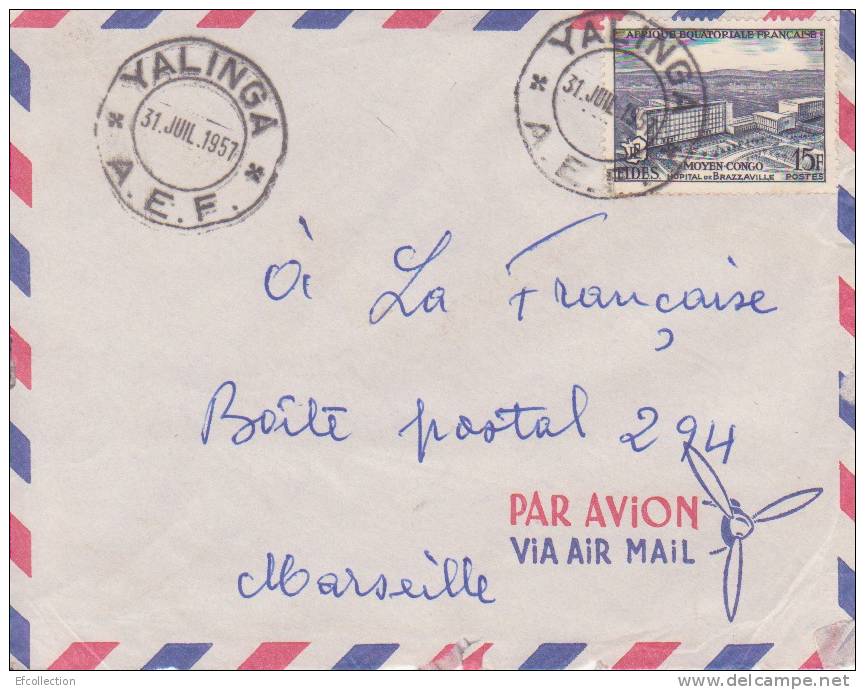 YALINGA
31.JUIL.1957
A.E.F.
YALINGA
31.JUIL.1957
A.E.F.
AFRIQUE EQUATORIALE FRANÇAISE
MOYEN-CONGO
15F
FIDES
HOPITAL DE BRAZZAVILLE
POSTES
à La Française
Boîte postal 294
PAR AViON
ViA AiR MAiL
Marseille
Efcollection
www.delcampe.net